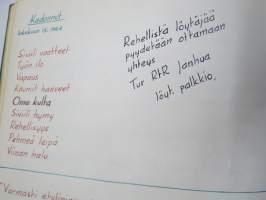 Kadonnut
Siviili vaatteet
Työn ilo
Vapaus
Kauniit haaveet
Oma kulta
Siviili hymy
Rehellisyys
Pehmeä leipä
Viinan halu
Rehellistä löytäjää
pyydetään ottamaan
yhteys
Tur RtR /anhua
löyt. palkkio.
"Varmasti